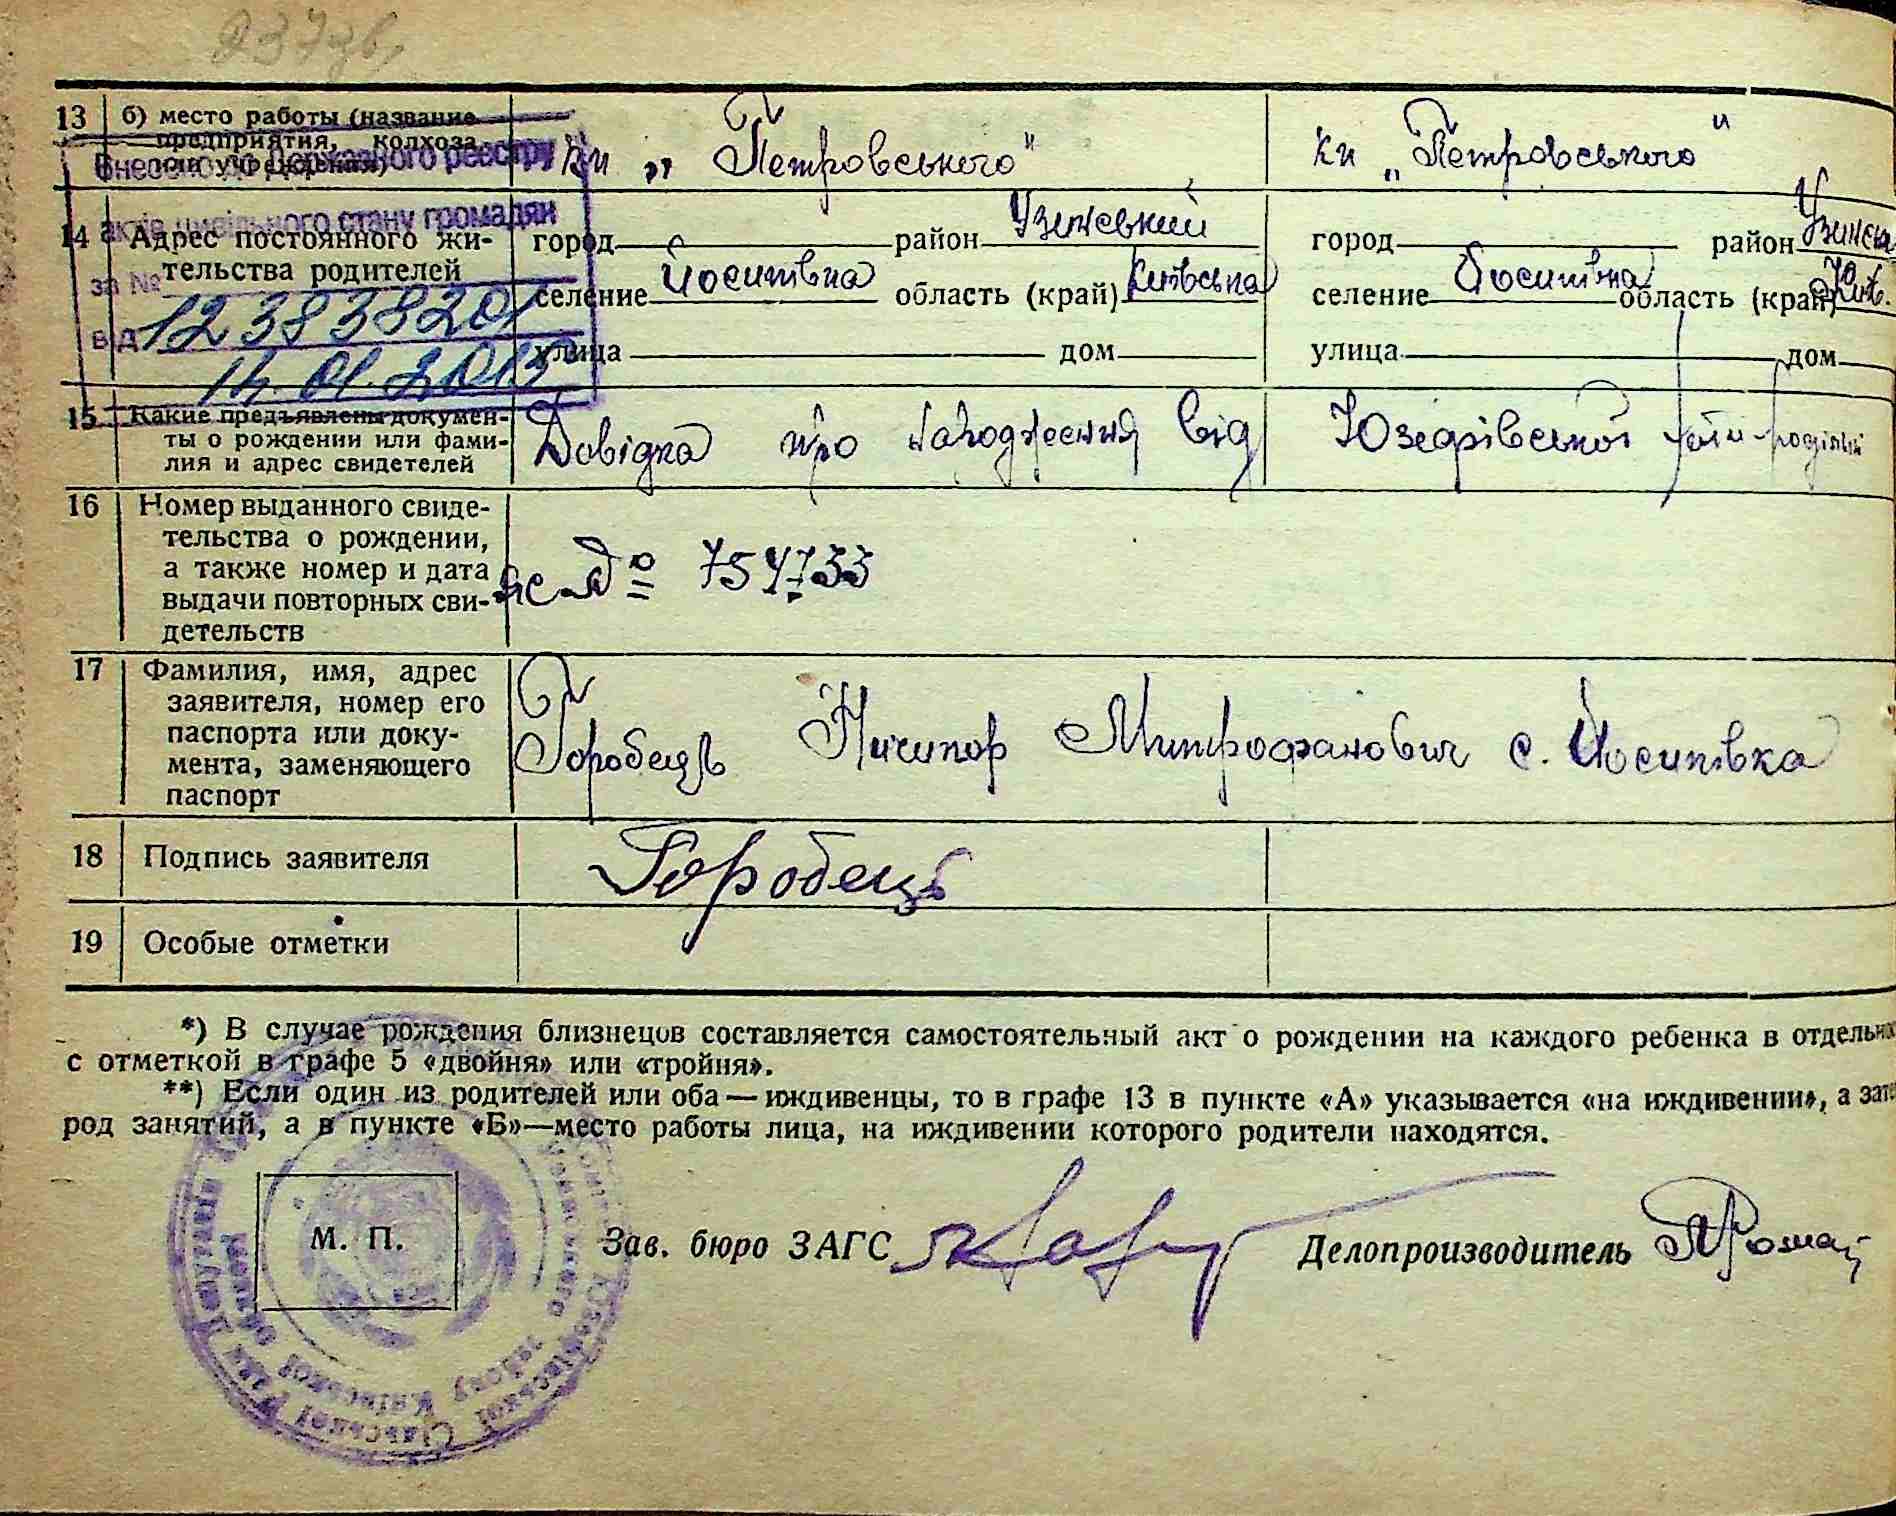 237зв
13 б) место работы (название предприятия, колхоза или учреждения) | кп „Петровського" | кп „Петровського"
Внесено до Державного реєстру
актів цивільного стану громадян
за № 12383820
від 14.01.2015
14 Адрес постоянного жи- | город район Узинський | город район Узинськ
тельства родителей | селение Йосипівка область (край) Київська | селение Йосипівка область (край) Київ.
улица дом | улица дом
15 Какие предъявлены докумен- | Довідка про народження від Юзефівської
ты о рождении или фами-
лия и адрес свидетелей
16 Номер выданного свиде-
тельства о рождении,
а также номер и дата | № 754733
выдачи повторных сви-
детельств
17 Фамилия, имя, адрес
заявителя, номер его
паспорта или доку- | Горобець Ничипор Митрофанович с. Йосипівка
мента, заменяющего
паспорт
18 Подпись заявителя | Горобець
19 Особые отметки
*) В случае рождения близнецов составляется самостоятельный акт о рождении на каждого ребенка в отдельно
с отметкой в графе 5 «двойня» или «тройня».
**) Если один из родителей или оба — иждивенцы, то в графе 13 в пункте «А» указывается «на иждивении», а зате
род занятий, а в пункте «Б»—место работы лица, на иждивении которого родители находятся.
М. П.
Зав. бюро ЗАГС Делопроизводитель
Юзефівської Сільської Ради Депутатів
району Київської області